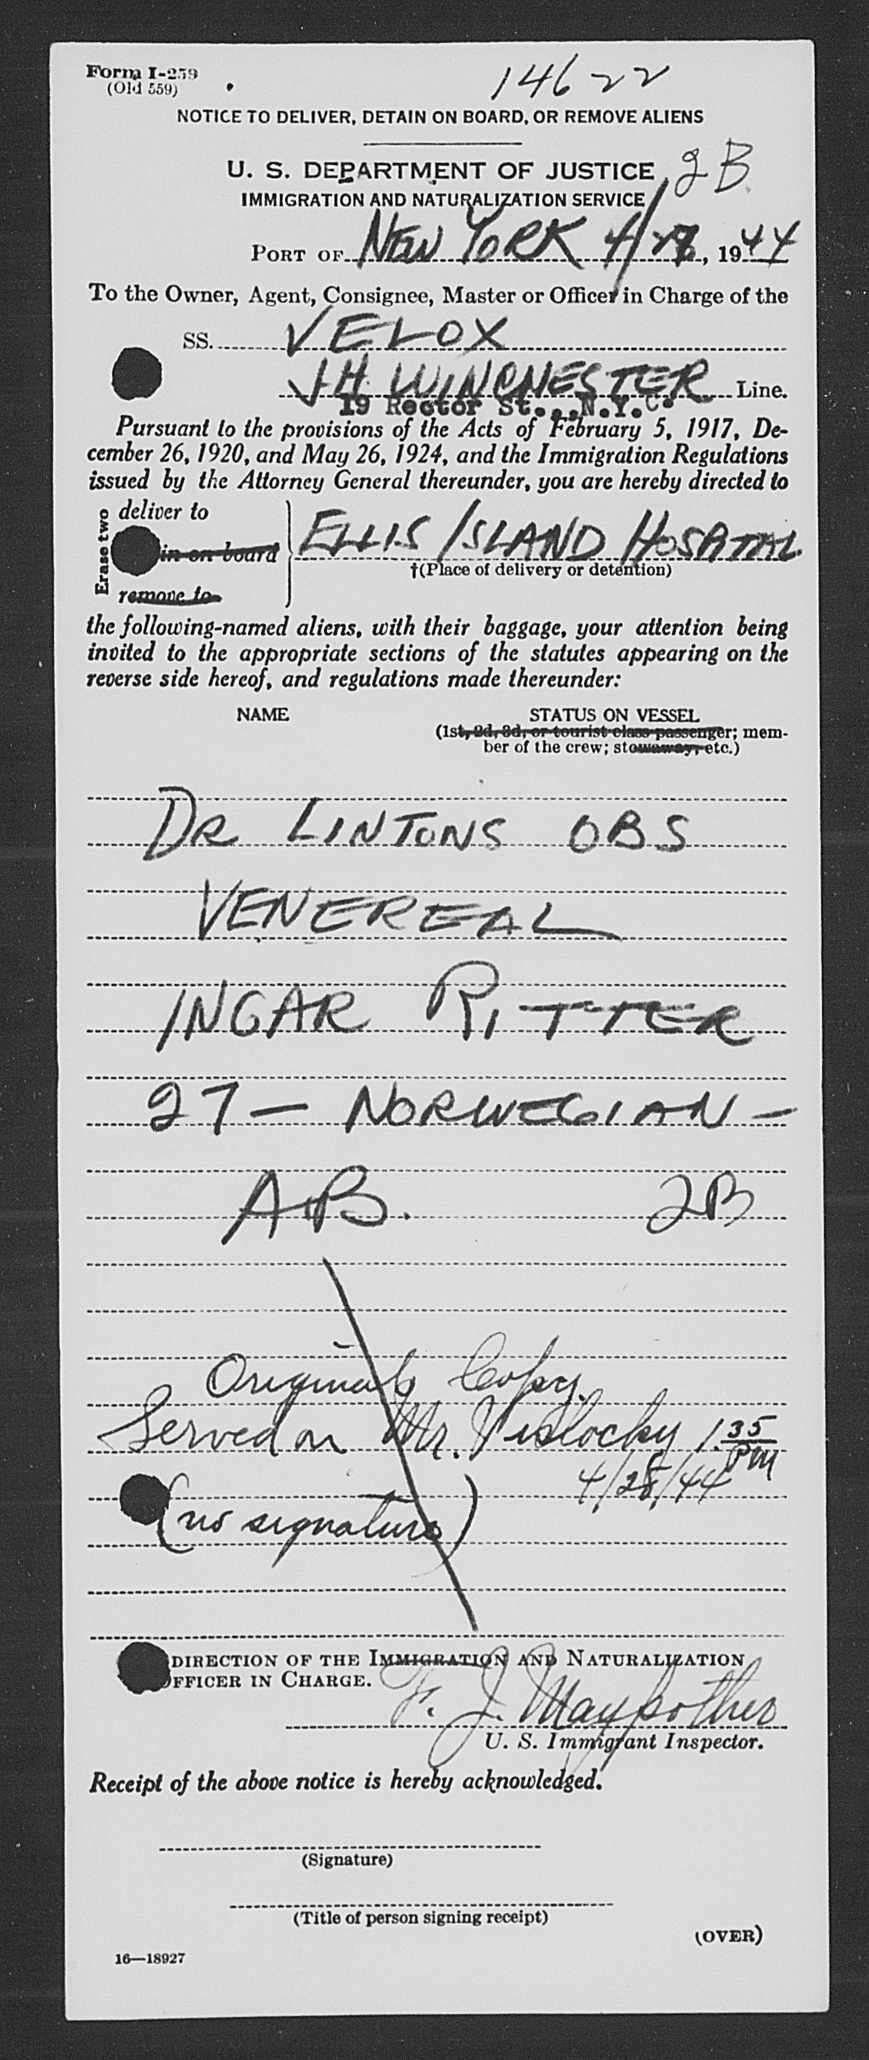 Form I-259
(Old 559)
14622
NOTICE TO DELIVER, DETAIN ON BOARD, OR REMOVE ALIENS
U. S. DEPARTMENT OF JUSTICE 2B
IMMIGRATION AND NATURALIZATION SERVICE
PORT OF NEW YORK 4/28, 1944
To the Owner, Agent, Consignee, Master or Officer in Charge of the
SS. VELOX
JH WINCHESTER Line.
19 Rector St., N.Y.C.
Pursuant to the provisions of the Acts of February 5, 1917, De-
cember 26, 1920, and May 26, 1924, and the Immigration Regulations
issued by the Attorney General thereunder, you are hereby directed to
Erase two
deliver to
in on board
remove to
ELLIS ISLAND HOSPITAL
†(Place of delivery or detention)
the following-named aliens, with their baggage, your attention being
invited to the appropriate sections of the statutes appearing on the
reverse side hereof, and regulations made thereunder:
NAME STATUS ON VESSEL
(1st, 2d, 3d, or tourist class passenger; mem-
ber of the crew; stowaway, etc.)
DR LINTONS OBS
VENEREAL
INGAR RITTER
27 — NORWEGIAN —
AB. 2B
Original Copy.
Served on Mr. Vislocky 1.35 PM
4/28/44
(no signature)
DIRECTION OF THE IMMIGRATION AND NATURALIZATION
FFICER IN CHARGE.
F. J. Maypother
U. S. Immigrant Inspector.
Receipt of the above notice is hereby acknowledged.
(Signature)
(Title of person signing receipt)
(OVER)
16—18927